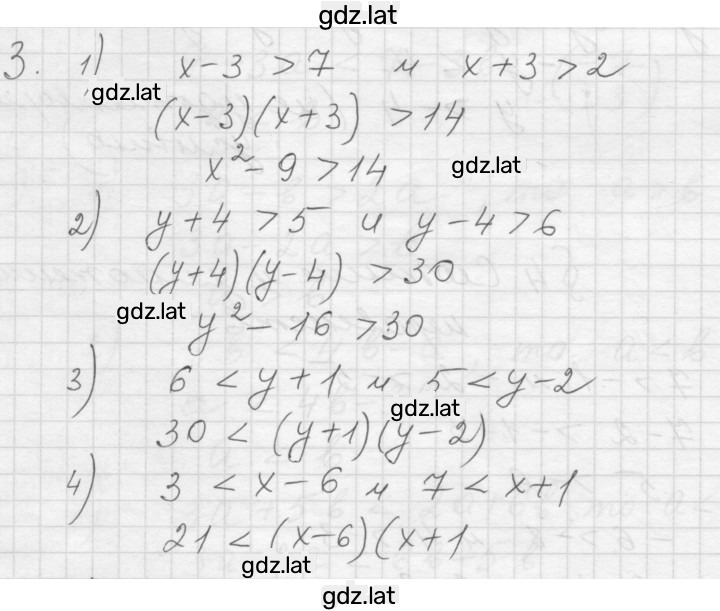 gdz.lat
3. 1) x-3 >7 и x+3>2
gdz.lat
(x-3)(x+3) >14
x²-9>14 gdz.lat
2) y+4 >5 и y-4>6
(y+4)(y-4) >30
gdz.lat
y²-16>30
3) 6 <y+1 и 5<y-2
gdz.lat
30 < (y+1)(y-2)
4) 3 <x-6 и 7<x+1
21 <(x-6)(x+1
gdz.lat
gdz.lat